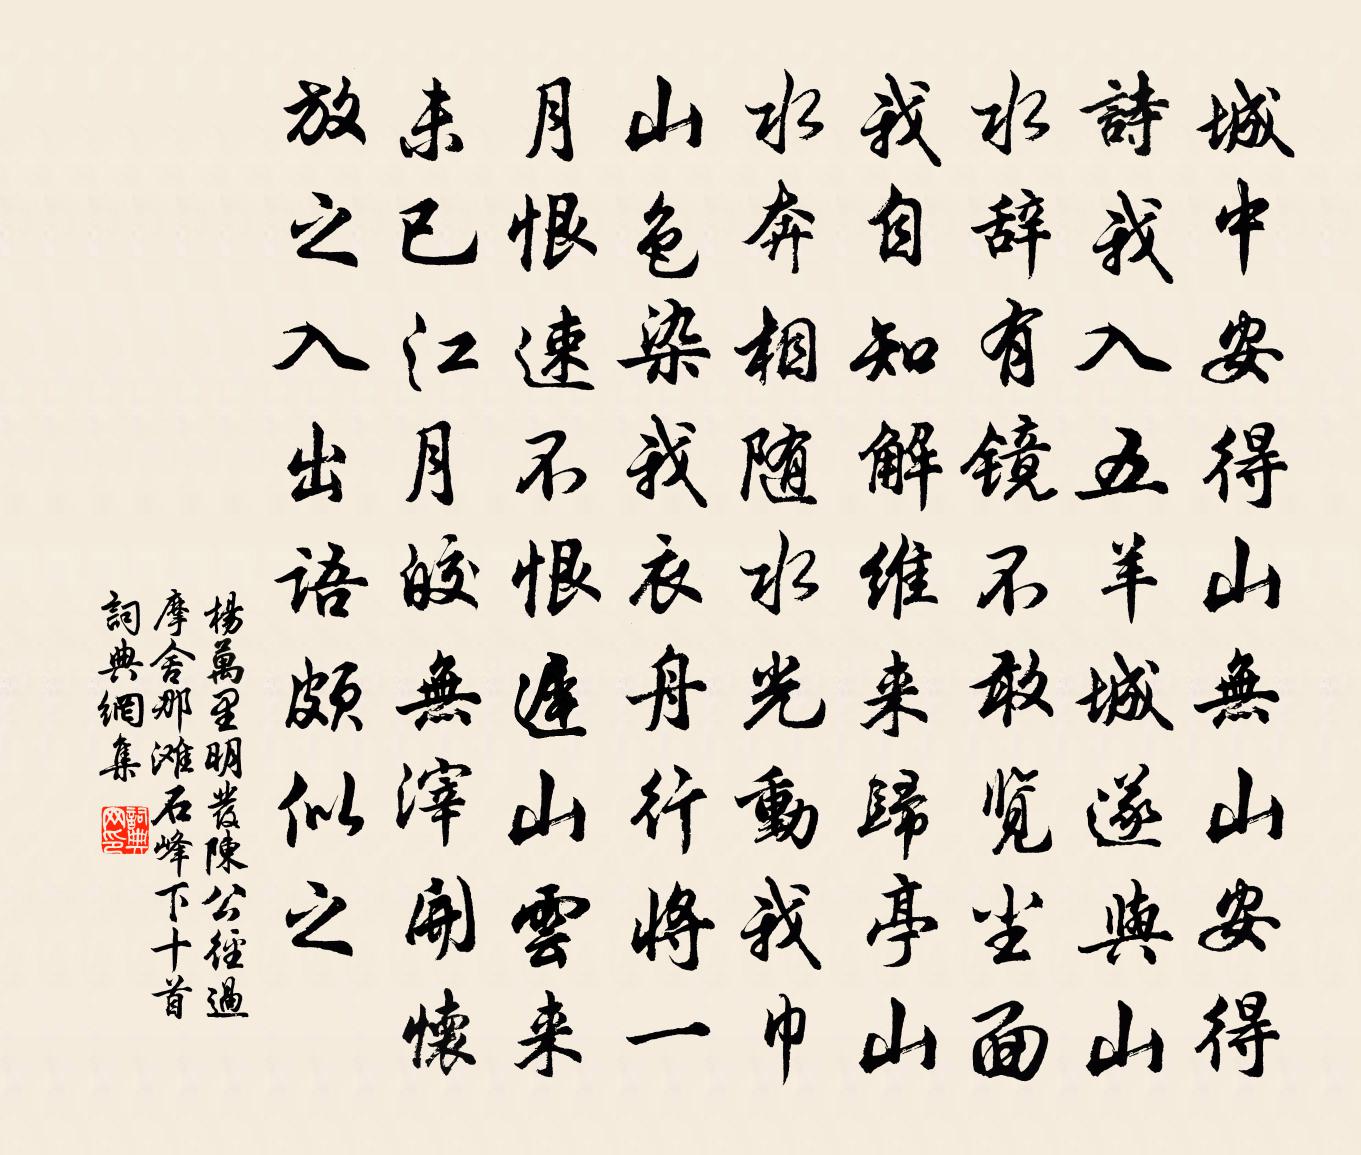 城中安得山無山安得
詩我入五羊城遂與山
水辞有镜不敢览尘面
我自知解维来歸亭山
水奔相随水光動我巾
山色染我衣舟行将一
月恨速不恨遲山雲来
未已江月皎無滓開懷
放之入出語頗似之
楊萬里明發陳公徑過
摩舍那滩石峰下十首
詞典網集
詞典
网印